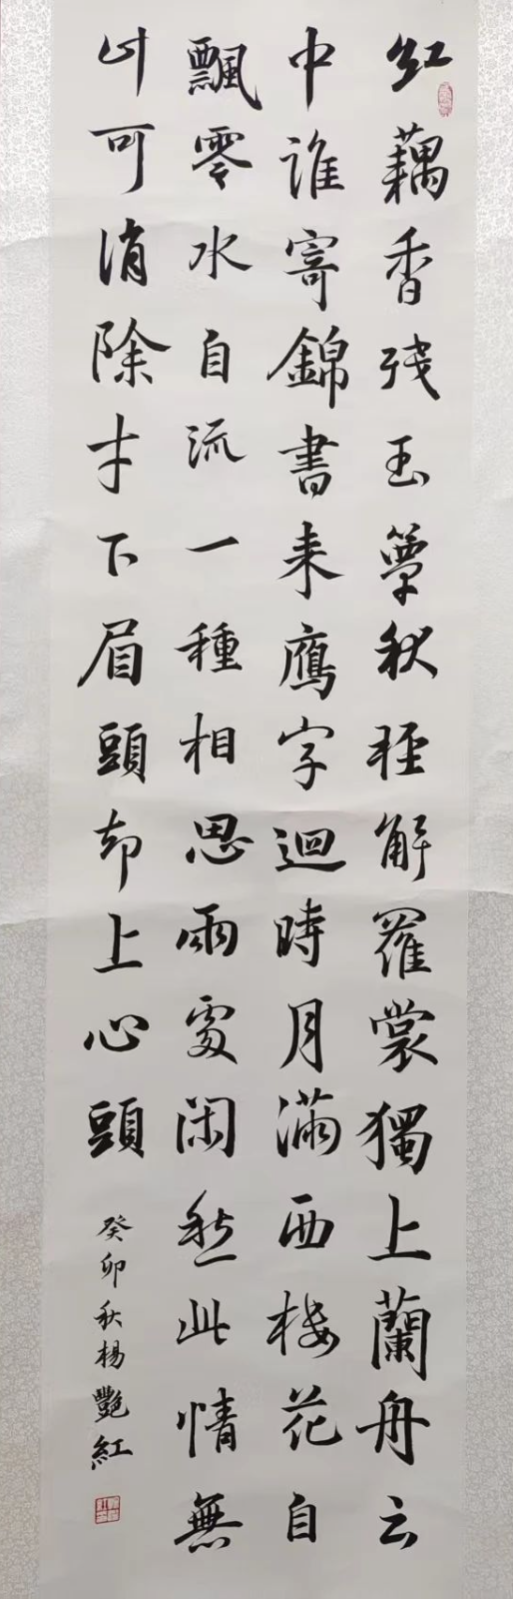 紅藕香残玉簟秋轻解羅裳獨上蘭舟云
中誰寄錦書来鴈字迴時月滿西楼花自
飄零水自流一種相思兩處閑愁此情無
计可消除才下眉頭却上心頭
癸卯秋杨艷紅